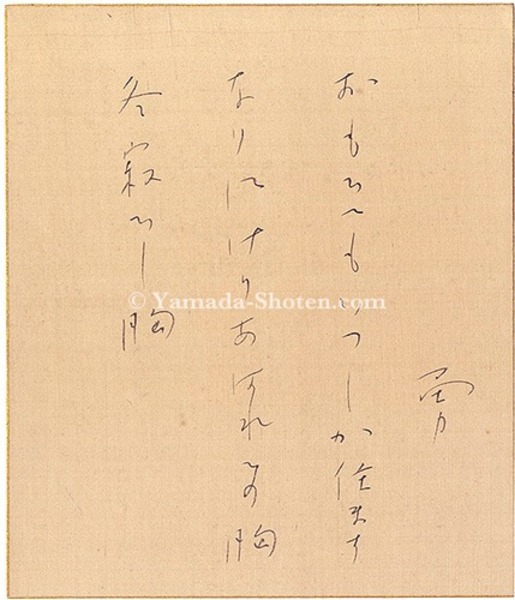 勇
おもひてもいつしか住ます
なりにけりあはれこの胸
冬寂ひし胸
© Yamada-Shoten.com